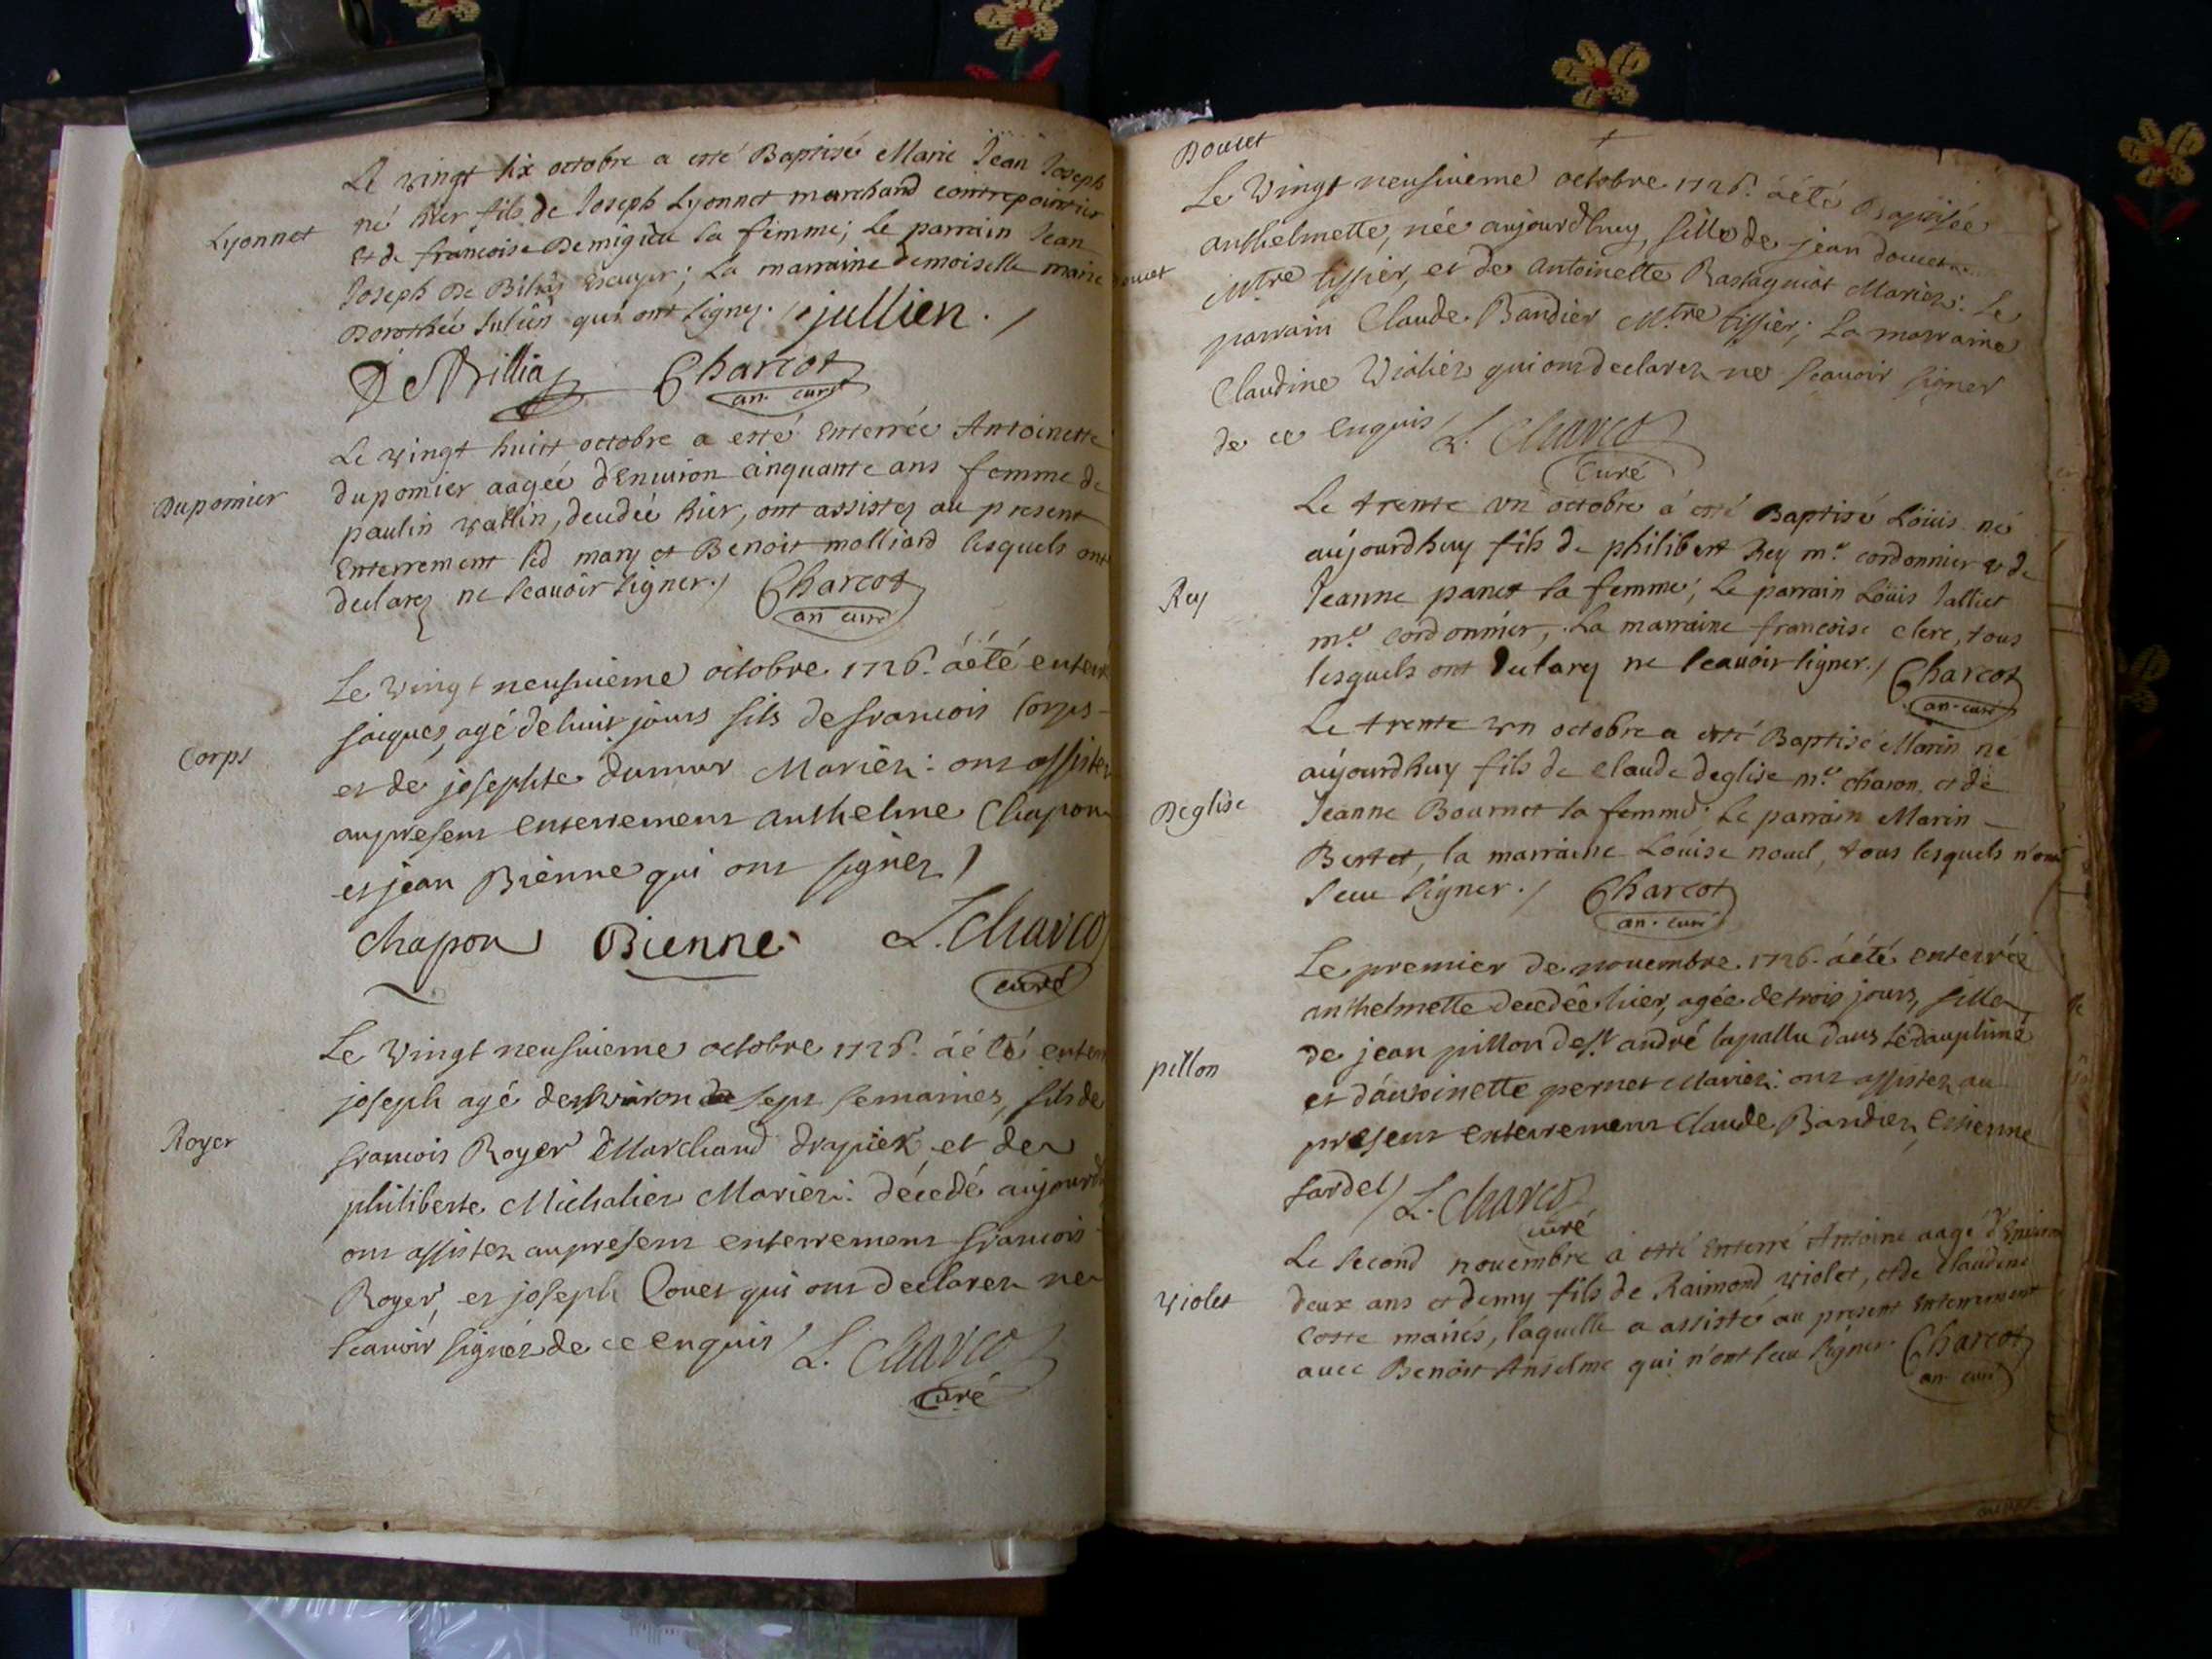 Le vingt six octobre a esté Baptisé Marie Jean Joseph
Lyonnet
né hier fils de Joseph Lyonnet marchand contrepointier
et de francoise Demigieu sa femme; Le parrain Jean
Joseph De Escuyer; La marraine demoiselle marie
Dorothée Julien qui ont signez. / jullien . /
Charcot
an. curé
Le vingt huitt octobre a esté Enterrée Antoinette
Dupomier
dupomier aagée d'Environ cinquante ans femme de
paulin vallin, decedée hier, ont assistez au present
Enterrement led mary et Benoit molliard lesquels ont
declarez ne scauoir signer./ Charcot
an curé
Le Vingt neufuieme octobre 1726. áété enterré
Corps
jacques, agé de huit jours fils de francois Corps
et de josephte dumar Mariez: ont assistez
aupresent enterrement anthelme Chapon
et jean Bienne qui ont signez /
chapon Bienne L. Charcot
curé
Le Vingt neufuieme octobre 1726. áété enterré
joseph agé denviron sept semaines, fils de
Royer
francois Royer Marchand drapier et de
philiberte Michalier Mariez: décedé aujourd
ont assistez aupresent enterrement francois
Royer, et joseph Couet qui ont declarez ne
scauoir signer de ce enquis / L. Charcot
curé
Doucet
Le Vingt neufuieme octobre 1726. áété Baptisée
anthelmette, née aujourdhuy, fille de jean doucet
doucet
Mtre tissier, et de Antoinette Rastagniat Mariez: Le
parrain Claude Bandier Mtre tissier; la marraine
Claudine Violier qui ont declarez ne scauoir signer
de ce enquis / L. Charcot
Curé
Le trente un octobre á esté Baptisé Löuis né
aujourdhuy fils de philibert Rey me. cordonnier & de
Rey
Jeanne panet sa femme; Le parrain Löuis Jalliet
me. cordonnier; La marraine francoise clerc, tous
lesquels ont declarez ne scauoir signer./ Charcot
an. curé
Le trente un octobre a esté Baptisé Marin né
aujourdhuy fils de claude deglise me. charon, et de
Deglise
Jeanne Bournet sa femme; Le parrain Marin
Bertet, la marraine Löuise nouel, tous lesquels n'ont
sceu signer. / Charcot
an. curé
Le premier de nouembre 1726. áété enterrée
anthelmette decedée hier, agée de trois jours, fille
pillon
de jean pillon de st andré lapallu dans le dauphiné
et dántoinette pernet Mariez: ont assistez au
present enterrement Claude Bandier, Estienne
sardet / L. Charcot
curé
Le second nouembre á esté enterré Antoine aagé d'Enuiron
Violet
deux ans et demy fils de Raimond violet, et de claudine
Coste mariés, laquelle a assisté au present Enterrement
auec Benoit Anselme qui n'ont sceu signer. Charcot
an. curé